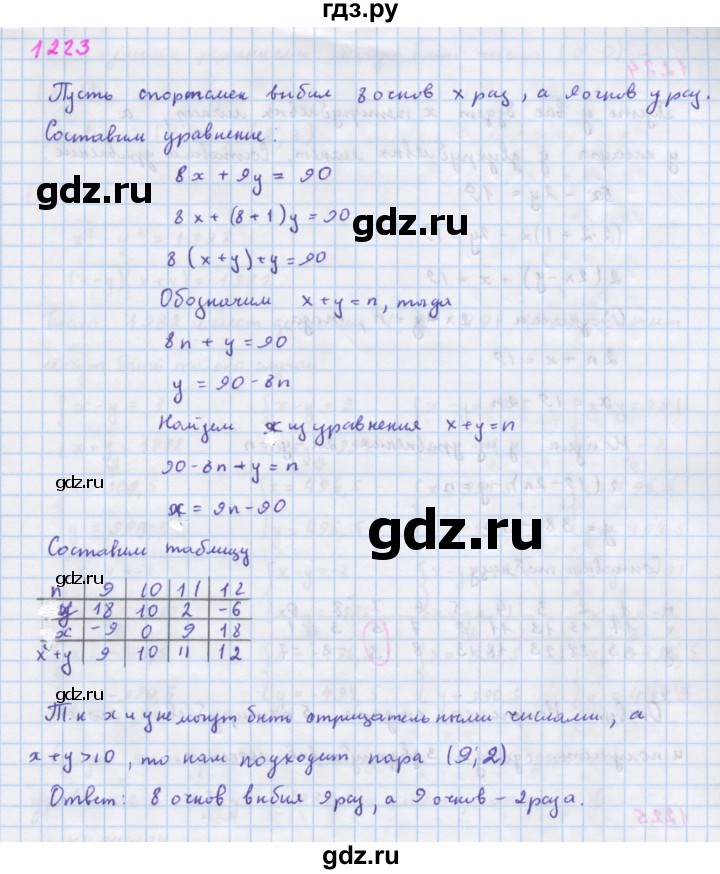 гдз.ру
1223
Пусть спортсмен выбил 8 очков x раз, а 9 очков y раз.
Составим уравнение:
8x + 9y = 90
8x + (8+1)y = 90
8(x+y)+y=90
Обозначим x+y=n, тогда
8n + y = 90
y = 90-8n
Найдем x из уравнения x+y=n
90-8n+y=n
gdz.ru
x = 9n-90
gdz.ru
gdz.ru
Составим таблицу
n 9 10 11 12
y 18 10 2 -6
x -9 0 9 18
x+y 9 10 11 12
gdz.ru
gdz.ru
Т.к x и y не могут быть отрицательными числами, а
x+y>10, то нам подходит пара (9;2)
Ответ: 8 очков выбил 9 раз, а 9 очков - 2 раза.
gdz.ru
gdz.ru